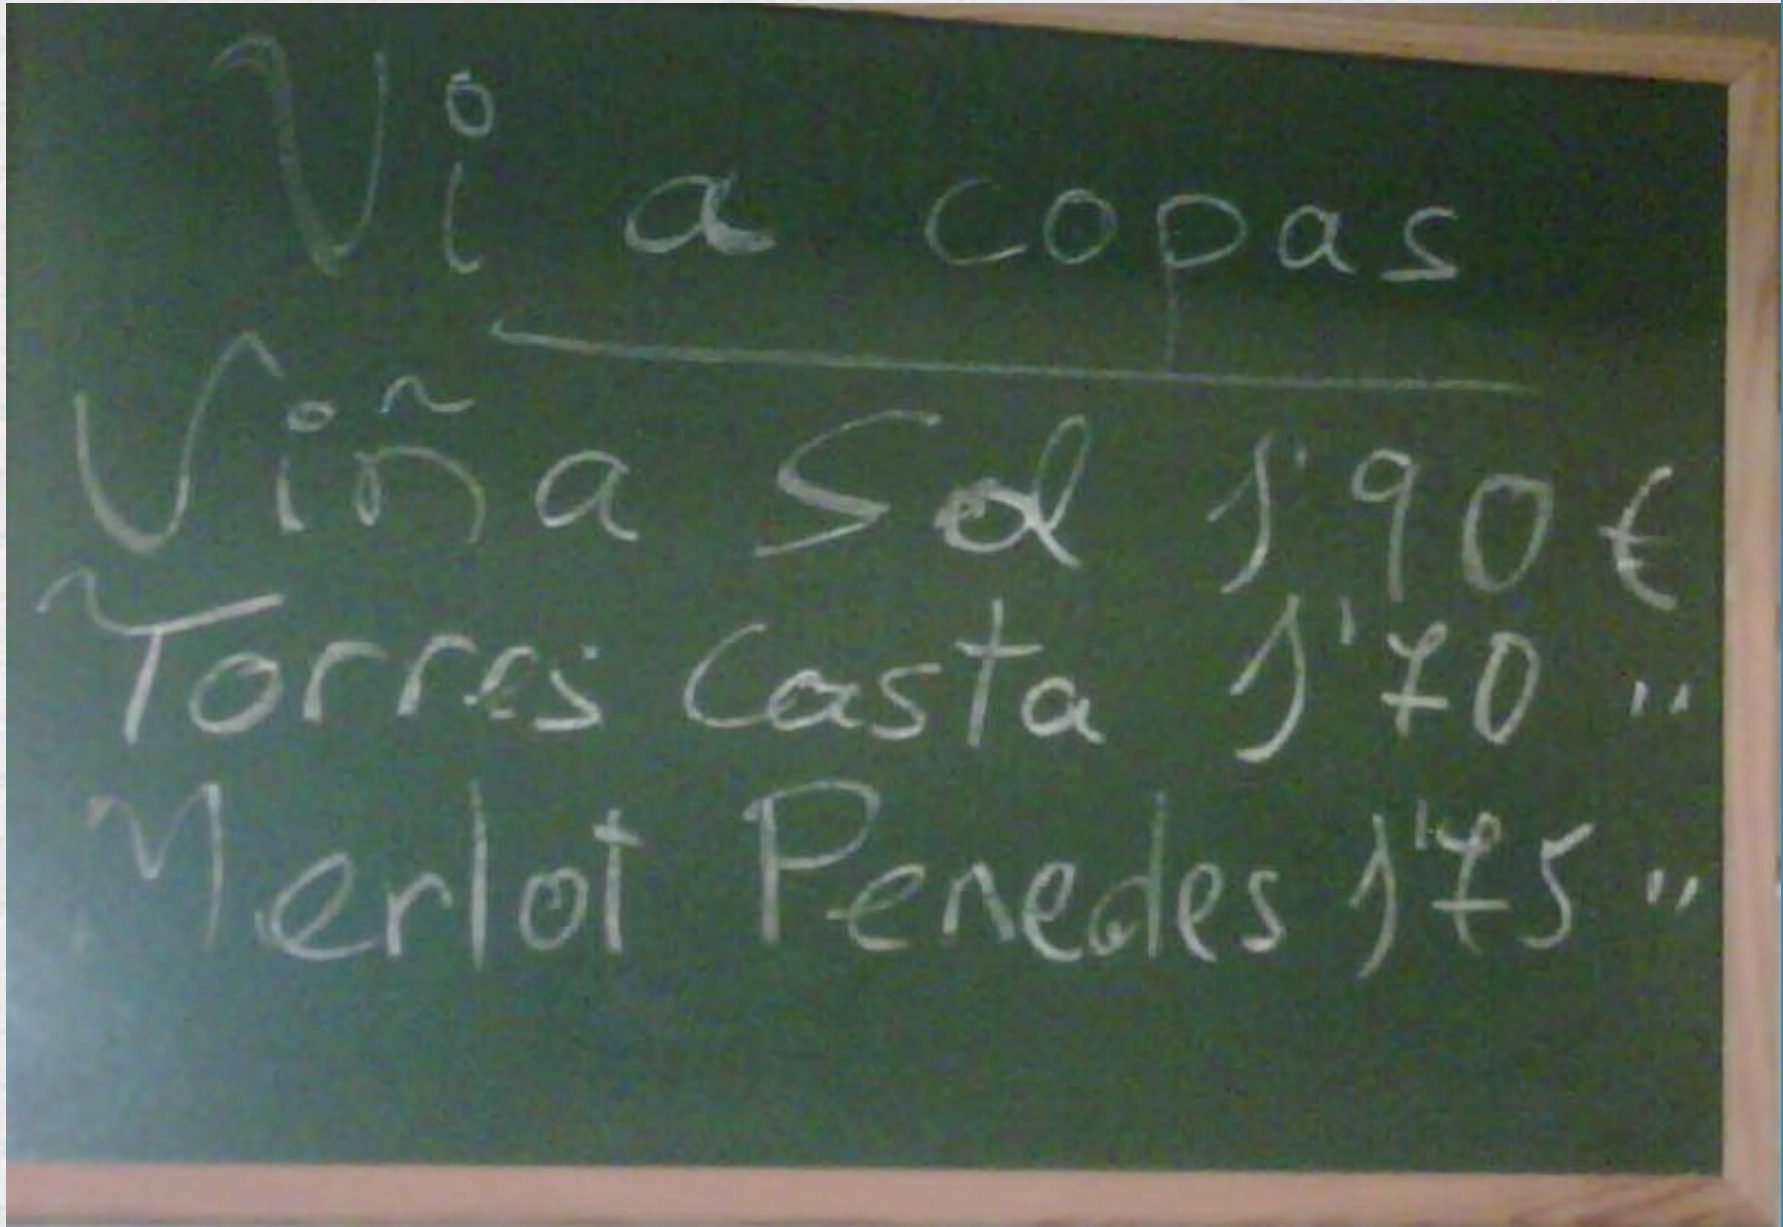 Vi a copas
Viña Sol 1'90 €
Torres Casta 1'70 "
Merlot Penedes 1'75 "